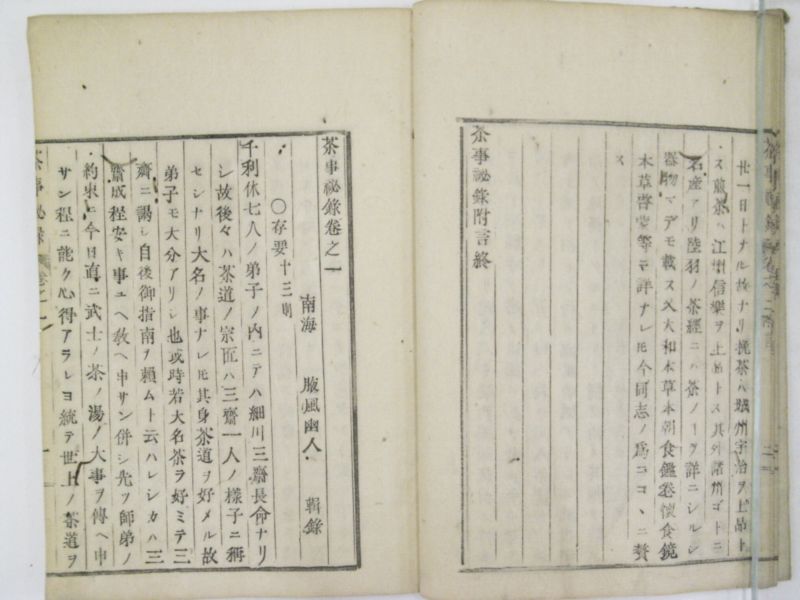 廿一日トナル故ナリ挽茶ハ城州宇治ヲ上品ト
ス煎茶ハ江州信樂ヲ上品トス其外諸州ゴトニ
名産アリ陸羽ノ茶經ニハ茶ノヿヲ詳ニシルシ
器物マデモ載ス又大和本草本朝食鑑卷懷食鏡
本草啓蒙等ニ詳ナレ𪜈今同志ノ爲コヽニ贅
ス
茶事祕錄附言終
茶事祕錄卷之一
南海 腹風幽人 輯錄
〇存要十三則
千利休七人ノ弟子ノ内ニテハ細川三齋長命ナリ
シ故後々ハ茶道ノ宗匠ハ三齋一人ノ樣子ニ稱
セシナリ大名ノ事ナレ𪜈其身茶道ヲ好メル故
弟子モ大分アリシ也或時若大名茶ヲ好ミテ三
齋ニ謁シ自後御指南ヲ賴ムト云ハレシカハ三
齋成程安キ事ユヘ敎ヘ申サン併シ先ツ師弟ノ
約束ニ今日直ニ武士ノ茶ノ湯ノ大事ヲ傳ヘ申
サン程ニ能ク心得アラレヨ統テ世上ノ茶道ヲ
茶事祕錄